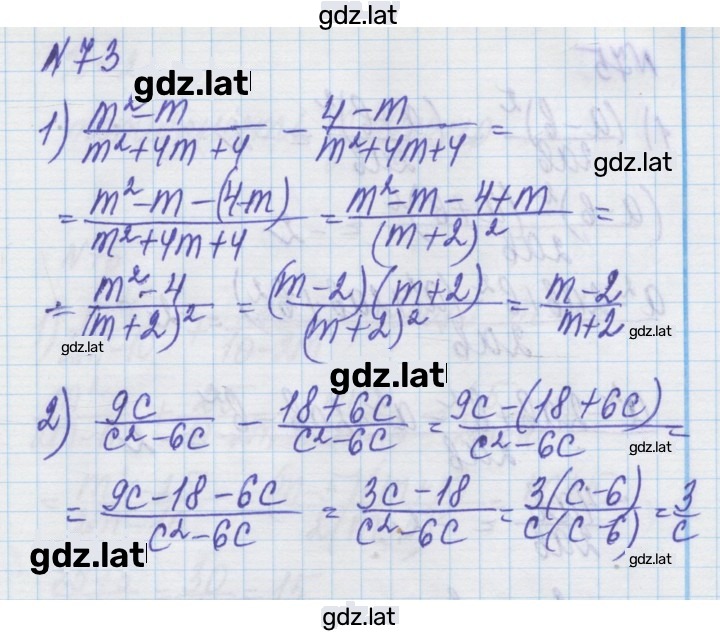 gdz.lat
№ 73
gdz.lat
1) (m²-m)/(m²+4m+4) - (4-m)/(m²+4m+4) =
gdz.lat
= (m²-m-(4-m))/(m²+4m+4) = (m²-m-4+m)/(m+2)² =
= (m²-4)/(m+2)² = ((m-2)(m+2))/(m+2)² = (m-2)/(m+2)
gdz.lat
gdz.lat
gdz.lat
2) 9c/(c²-6c) - (18+6c)/(c²-6c) = (9c-(18+6c))/(c²-6c) =
gdz.lat
= (9c-18-6c)/(c²-6c) = (3c-18)/(c²-6c) = 3(c-6)/(c(c-6)) = 3/c
gdz.lat
gdz.lat
gdz.lat